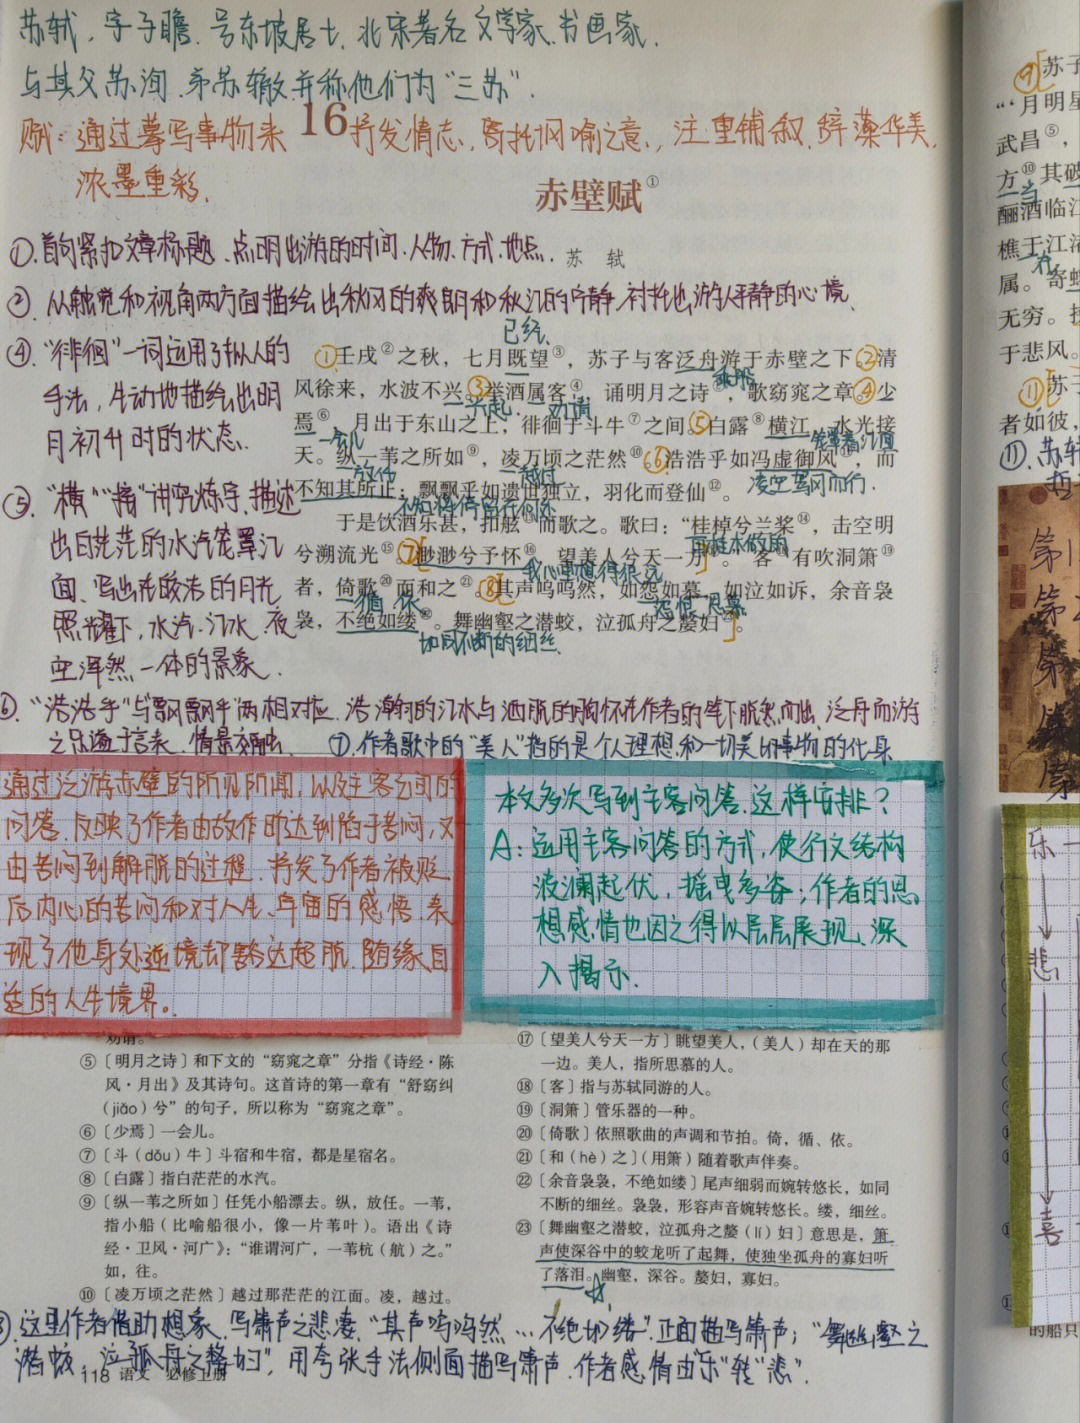 苏轼，字子瞻，号东坡居士，北宋著名文学家、书画家，
与其父苏洵，弟苏辙并称他们为“三苏”。
赋：通过摹写事物来抒发情志、寄托讽喻之意，注重铺叙，辞藻华美，
浓墨重彩。
16
赤壁赋①
①首句紧扣文章标题，点明出游的时间、人物、方式、地点。
苏 轼
②从触觉和视角两方面描绘出秋风的爽朗和秋江的宁静，衬托出游人平静的心境。
④“徘徊”一词运用了拟人的
手法，生动地描绘出明
月初升时的状态。
⑤“横”“接”讲究炼字，描述
出白茫茫的水汽笼罩江
面，写出在皎洁的月光
照耀下，水汽、江水、夜
空浑然一体的景象。
已经
①壬戌②之秋，七月既望③，苏子与客泛舟游于赤壁之下②清
乘船
风徐来，水波不兴③举酒属客④，诵明月之诗⑤，歌窈窕之章④少
兴起 劝请
焉⑥，月出于东山之上，徘徊于斗牛⑦之间⑤白露⑧横江，水光接
一会儿 笼罩着江面
天。纵一苇之所如⑨，凌万顷之茫然⑩⑥浩浩乎如冯虚御风⑪，而
放任 越过 凌空驾风而行
不知其所止；飘飘乎如遗世独立，羽化而登仙⑫。
于是饮酒乐甚，扣舷⑬而歌之。歌曰：“桂棹兮兰桨⑭，击空明
兮溯流光⑮⑦渺渺兮予怀⑯，望美人兮天一方⑰。”客⑱有吹洞箫⑲
我心里想得很远
者，倚歌⑳而和之㉑。⑧其声呜呜然，如怨如慕，如泣如诉，余音袅
循、依 怨恨 思慕
袅，不绝如缕㉒。舞幽壑之潜蛟，泣孤舟之嫠妇㉓。
如同不断的细丝
⑥“浩浩乎”与“飘飘乎”两相对应，浩瀚的江水与洒脱的胸怀在作者的笔下脱然而出，泛舟而游
之乐溢于言表，情景交融。
⑦作者歌中的“美人”指的是个人理想和一切美好事物的化身
通过泛游赤壁的所见所闻，以及主客之间的
问答，反映了作者由故作旷达到陷于苦闷，又
由苦闷到解脱的过程，抒发了作者被贬
后内心的苦闷和对人生、宇宙的感悟，表
现了他身处逆境却豁达超脱，随缘自
适的人生境界。
本文多次写到主客问答，这样安排？
A：运用主客问答的方式，使行文结构
波澜起伏，摇曳多姿；作者的思
想感情也因之得以层层展现、深
入揭示。
劝请。
⑤〔明月之诗〕和下文的“窈窕之章”分指《诗经·陈
风·月出》及其诗句。这首诗的第一章有“舒窈纠
（jiǎo）兮”的句子，所以称为“窈窕之章”。
⑥〔少焉〕一会儿。
⑦〔斗（dǒu）牛〕斗宿和牛宿，都是星宿名。
⑧〔白露〕指白茫茫的水汽。
⑨〔纵一苇之所如〕任凭小船漂去。纵，放任。一苇，
指小船（比喻船很小，像一片苇叶）。语出《诗
经·卫风·河广》：“谁谓河广，一苇杭（航）之。”
如，往。
⑩〔凌万顷之茫然〕越过那茫茫的江面。凌，越过。
⑰〔望美人兮天一方〕眺望美人，（美人）却在天的那
一边。美人，指所思慕的人。
⑱〔客〕指与苏轼同游的人。
⑲〔洞箫〕管乐器的一种。
⑳〔倚歌〕依照歌曲的声调和节拍。倚，循、依。
㉑〔和（hè）之〕（用箫）随着歌声伴奏。
㉒〔余音袅袅，不绝如缕〕尾声细弱而婉转悠长，如同
不断的细丝。袅袅，形容声音婉转悠长。缕，细丝。
㉓〔舞幽壑之潜蛟，泣孤舟之嫠（lí）妇〕意思是，箫
声使深谷中的蛟龙听了起舞，使独坐孤舟的寡妇听
了落泪。幽壑，深谷。嫠妇，寡妇。
⑧这里作者借助想象，写箫声之悲凄，“其声呜呜然…不绝如缕”正面描写箫声；“舞幽壑之
潜蛟，泣孤舟之嫠妇”，用夸张手法侧面描写箫声，作者感情由“乐”转“悲”。
118 语文 必修上册
⑨苏子
“‘月明星
武昌⑤，
方⑩其破
当
酾酒临江
樵于江渚
在
属。寄蜉
无穷。挟
于悲风。
⑪苏子
者如彼，
⑪苏轼
第
第
第
第
第
乐
悲
喜
的船只